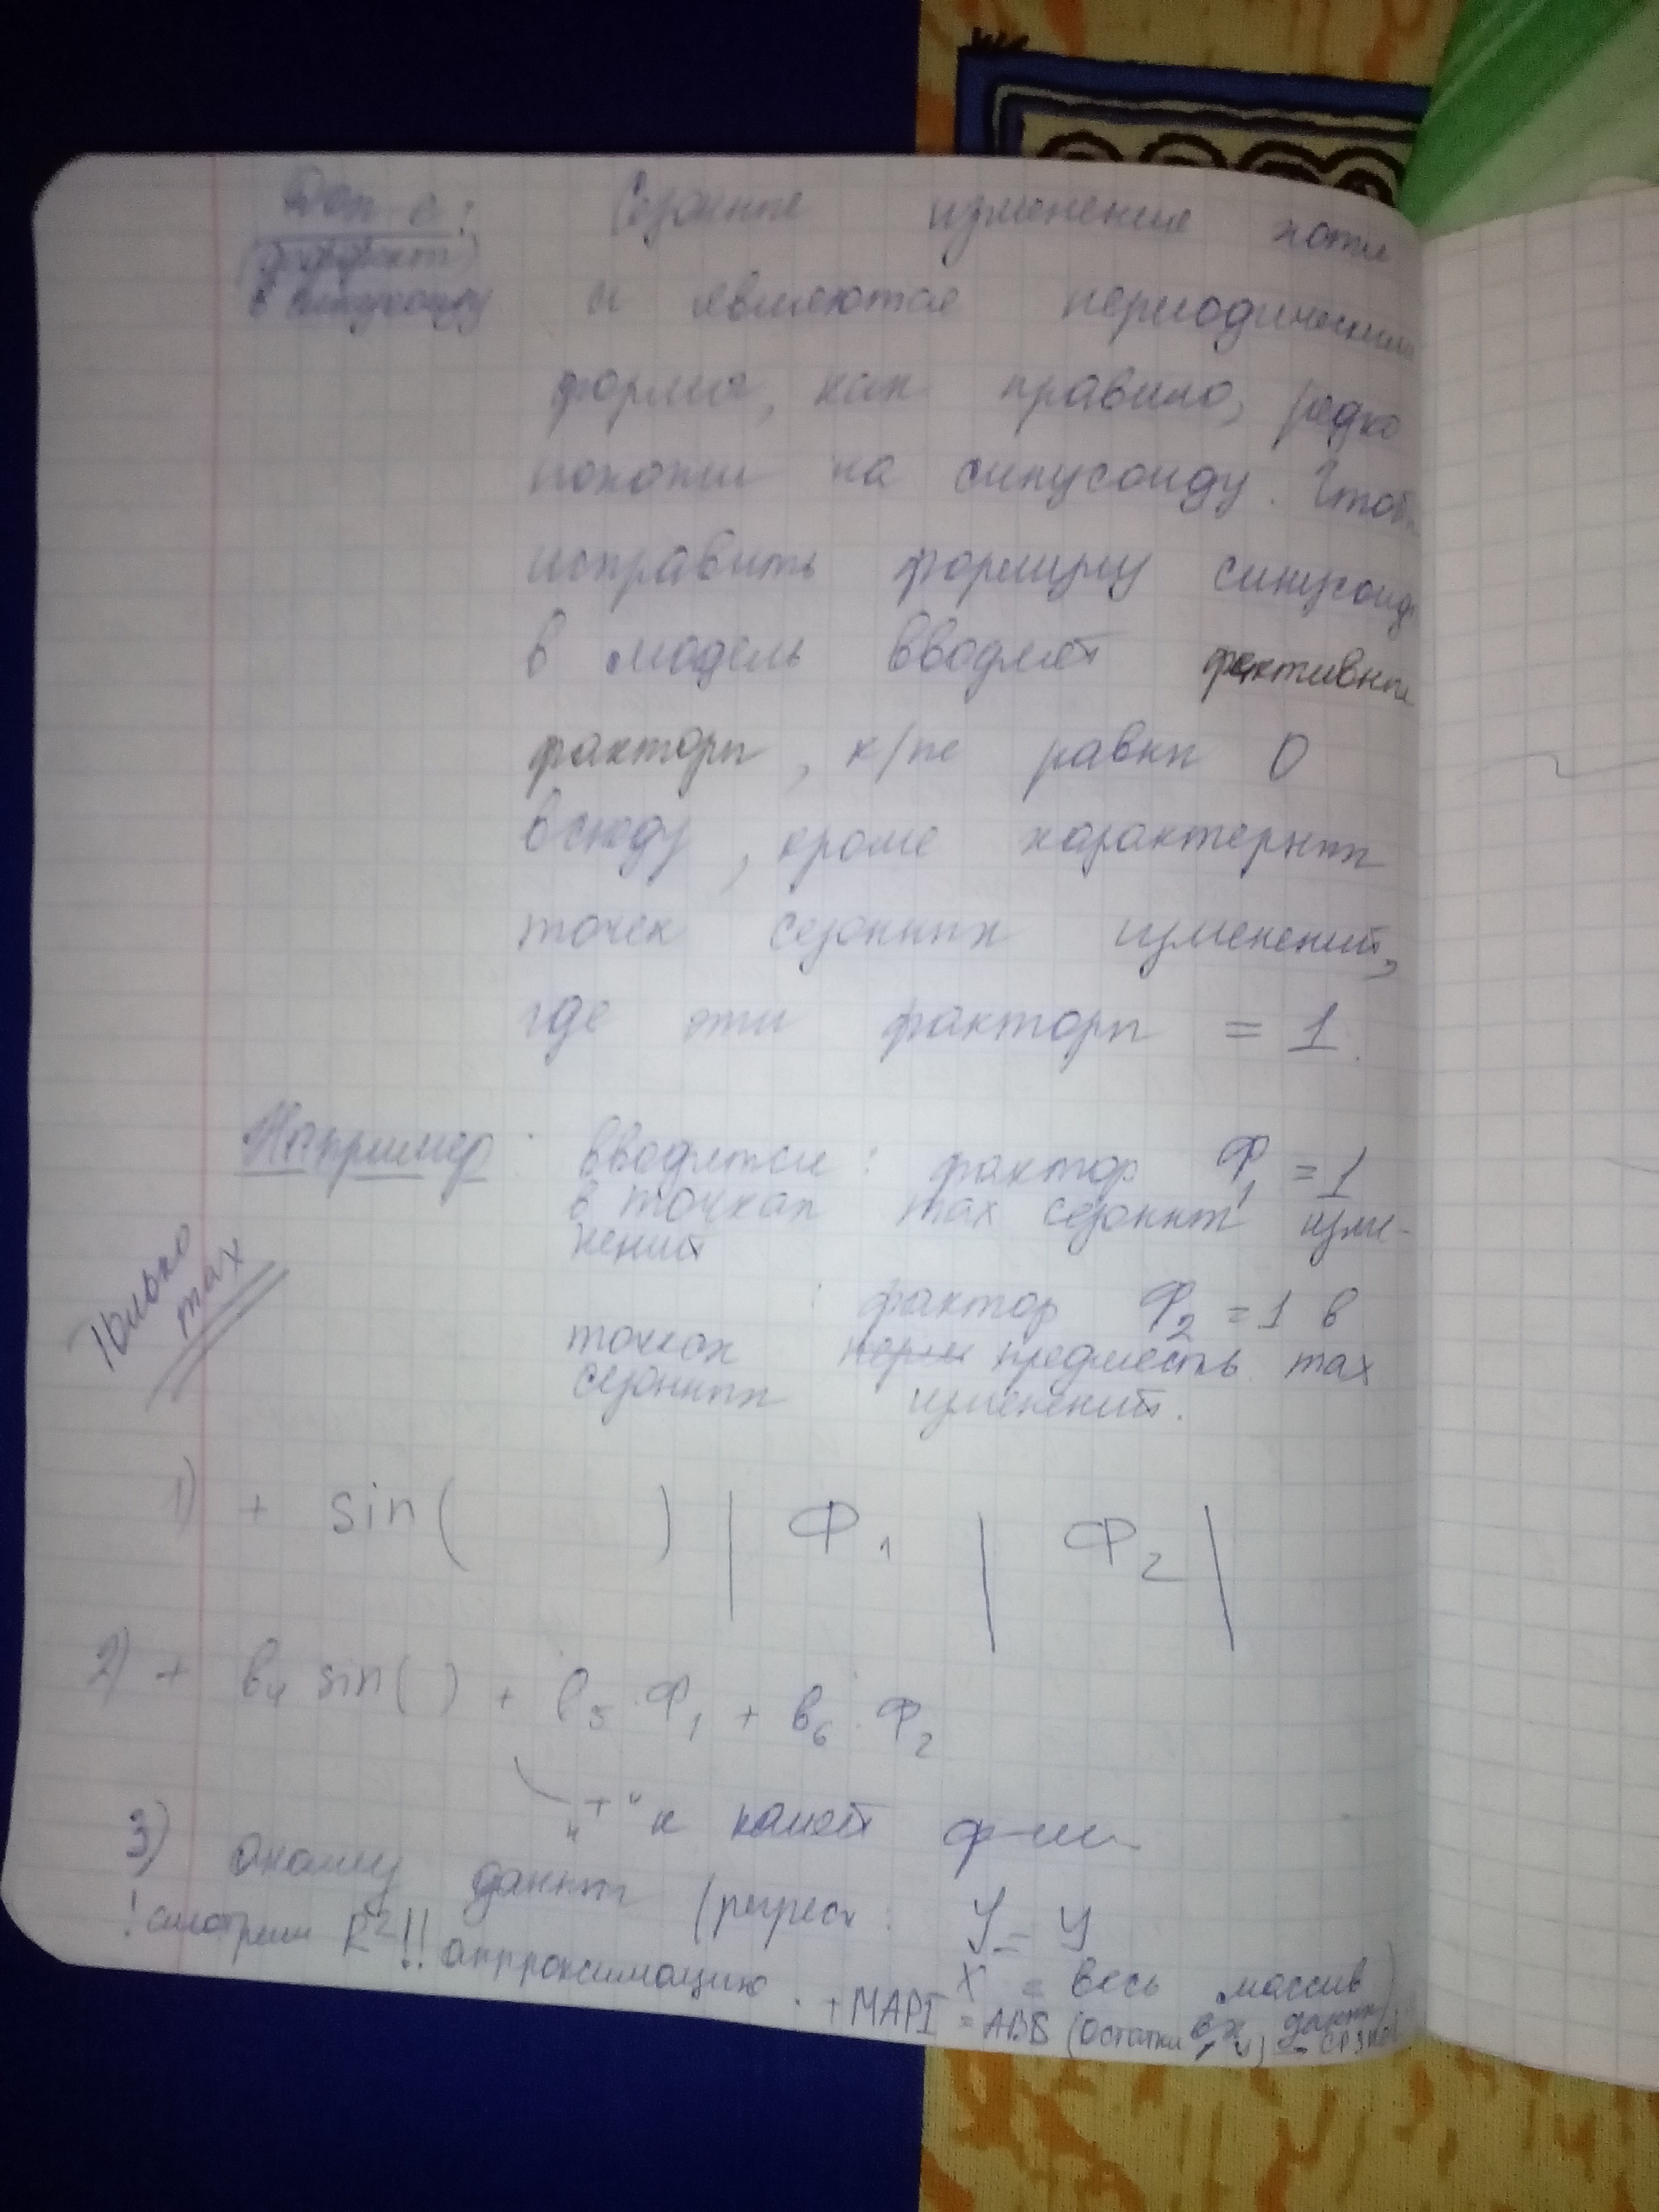 Доп-е: Сезонные изменения хотя
(эффект)
в синусоиду и являются периодическими
форма, как правило, редко
похожи на синусоиду. Чтоб
исправить формулу синусоид
в модель вводят фиктивные
факторы, к/ые равны 0
всюду, кроме характерных
точек сезонных изменений,
где эти факторы = 1.
Например: вводятся: фактор Ф1 = 1
в точках max сезонных изме-
нений
Только
max
: фактор Ф2 = 1 в
точках предшеств. max
сезонных изменений.
1) + sin( ) | Ф1 | Ф2 |
2) + в4 sin( ) + в5 · Ф1 + в6 · Ф2
"+" к нашей ф-ии
3) анализ данных (регресс: Y = y
X = весь массив)
! смотрим R²!! аппроксимацию. + MAPI = ABS (остатки